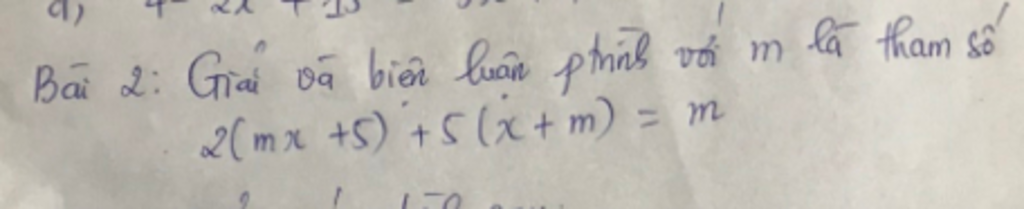 Bài 2: Giải và biện luận ptrình với m là tham số
2(mx + 5) + 5(x + m) = m